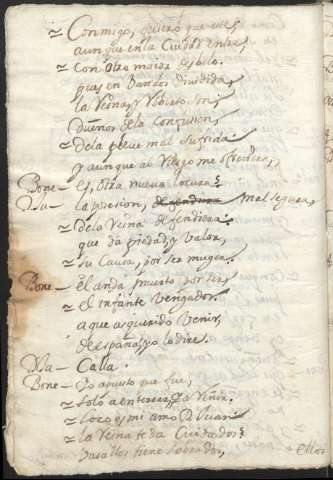 Conmigo, quiero que este,
aunque en la Ciudad entre,
con otro maior
pues, en bandos dividida,
la Reina, y Roberto son,
dueños de la confusion,
de la pleve mal sufrida.
y aunque al Riesgo me ofrecies,
Bone — es, otra nueva locura?
la presion, mal segura,
de la Reina defendiera.
que da piedad, y valor,
su Causa, por ser muger.
Bone — el anda muerto por ser,
el infante Vengador.
a que a querido venir,
de españa, yo lo dire.
Calla.
Bone — Yo apuesto que fue,
solo a enterrarse a
loco es mi amo
la Reina te da Cuidado?
basallos tiene sobrados,
ellos